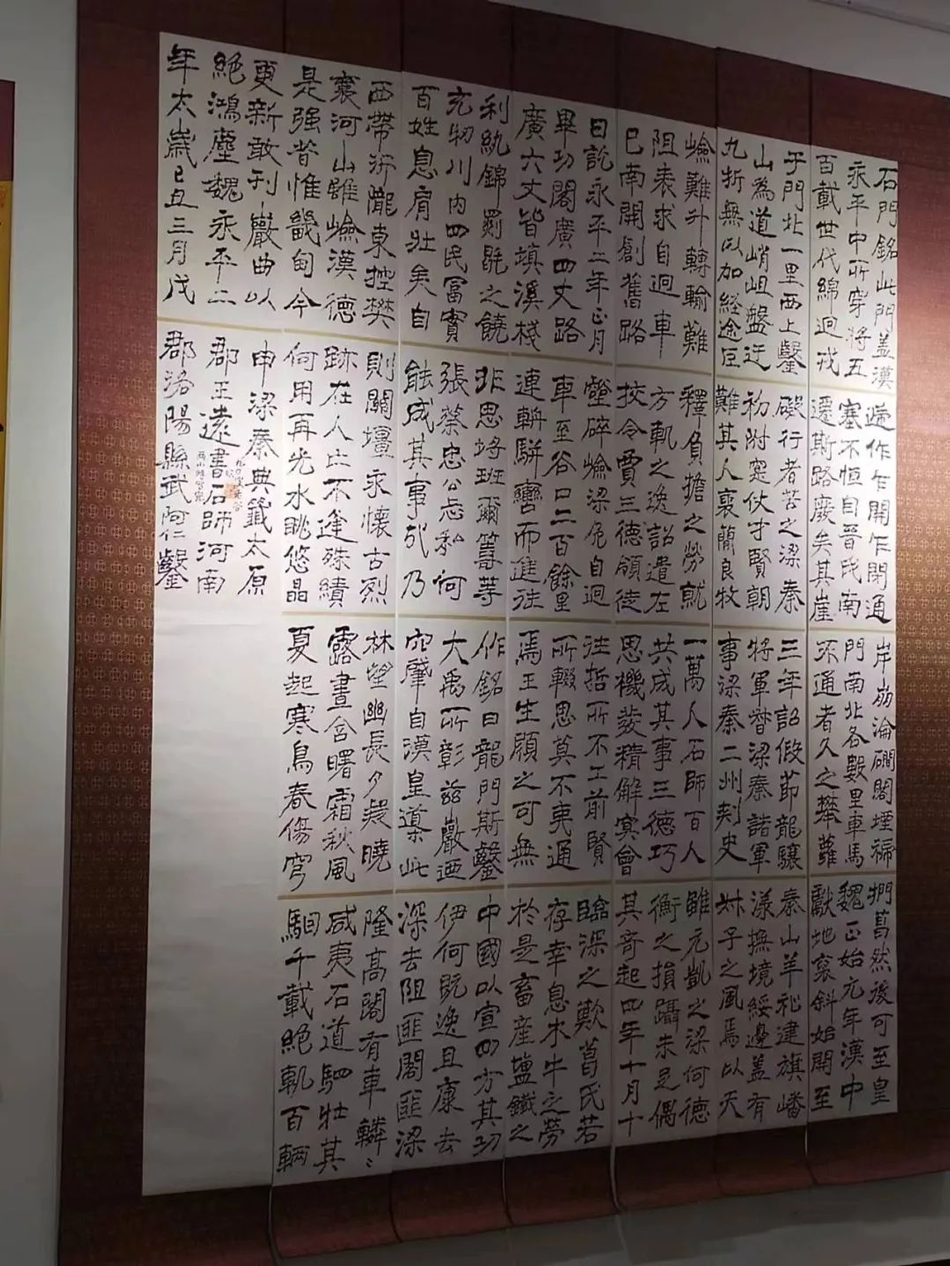 石門銘此門盖漢
永平中所穿將五
百載世代綿迴戎
遞作乍開乍閉通
塞不恒自晉氏南
遷斯路廢矣其崖
岸崩淪磵閣堙褫
門南北各數里車馬
不通者久之攀蘿
捫葛然後可至皇
魏正始元年漢中
獻地褒斜始開至
于門北一里西上鑿
山為道峭岨盤迂
九折無以加經途巨
礙行者苦之梁秦
初附寔仗才賢朝
難其人褒簡良牧
三年詔假節龍驤
將軍督梁秦諸軍
事梁秦二州刺史
泰山羊祉建旗嶓
漾撫境綏邊盖有
叔子之風焉以天
嶮難升轉輸難
阻表求自迴車
已南開創舊路
釋負擔之勞就
方軌之逸詔遣左
挍令賈三德領徒
一萬人石師百人
共成其事三德巧
思機發精解冥會
雖元凱之梁河德
衡之損躡未足偶
其奇起四年十月十
日訖永平二年正月
畢功閣廣四丈路
廣六丈皆填溪棧
壑碎嶮梁危自迴
車至谷口二百餘里
連輈駢轡而進往
往哲所不工前賢
所輟思莫不夷通
焉王生履之可無
臨深之歎葛氏若
存幸息木牛之勞
於是畜產鹽鐵之
利紈錦罽毼之饒
充牣川內四民富實
百姓息肩壯矣自
非思埒班爾籌等
張蔡忠公忘私何
能成其事哉乃
作銘曰龍門斯鑿
大禹所彰茲巖迺
穴肇自漢皇導此
中國以宣四方其功
伊何既逸且康去
深去阻匪閣匪梁
西帶汧隴東控樊
襄河山雖嶮漢德
是强昔惟畿甸今
則關壃永懷古烈
跡在人亡不逢殊績
何用再光水眺悠皛
林望幽長夕凝曉
露晝含曙霜秋風
夏起寒鳥春傷穹
隆高閣有車轔〻
咸夷石道駟牡其
駰千載絕軌百輛
更新敢刊巖曲以
絕鴻塵魏永平二
年太歲己丑三月戊
申梁秦典籤太原
郡王遠書石師河南
郡洛陽縣武阿仁鑿